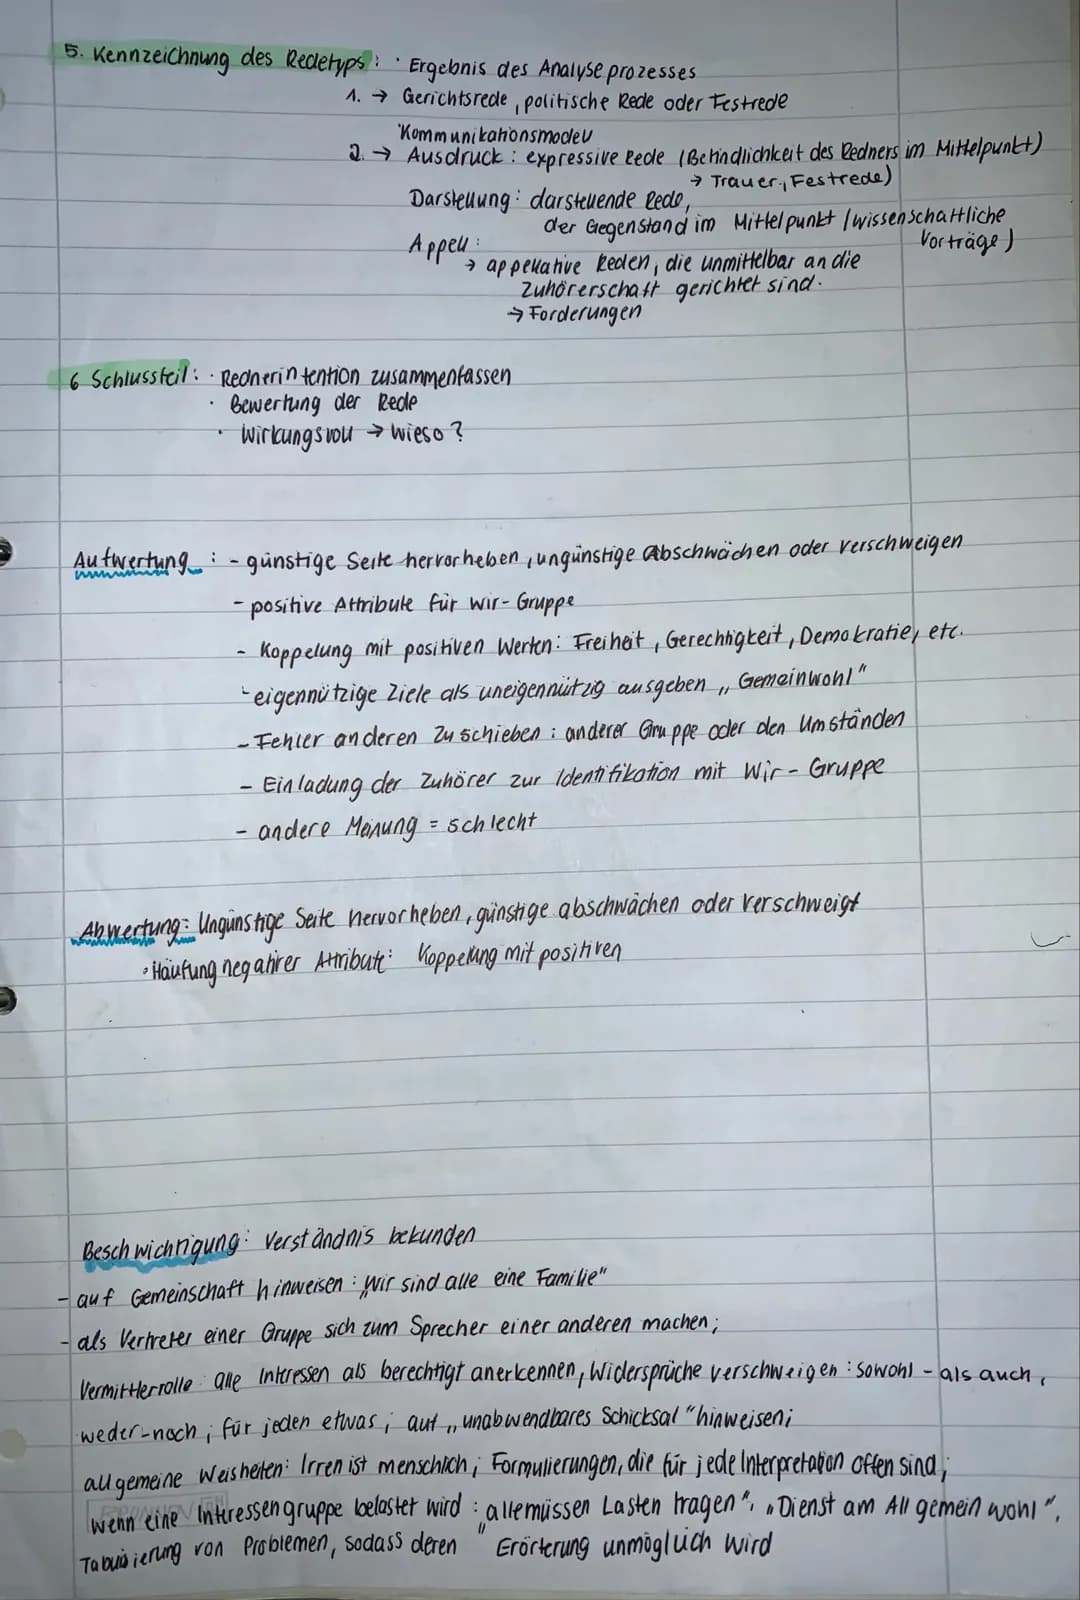 5. Kennzeichnung des Redetyps: · Ergebnis des Analyseprozesses
1. → Gerichtsrede, politische Rede oder Festrede
Kommunikationsmodell
2. → Ausdruck: expressive Rede (Befindlichkeit des Redners im Mittelpunkt)
→ Trauer, Festrede)
Darstellung: darstellende Rede,
der Gegenstand im Mittelpunkt (wissenschaftliche
Vorträge)
Appell:
→ appellative Reden, die unmittelbar an die
Zuhörerschaft gerichtet sind.
→ Forderungen
6 Schlussteil: · Rednerintention zusammenfassen
· Bewertung der Rede
· Wirkungsvoll → Wieso?
Aufwertung : - günstige Seite hervorheben, ungünstige abschwächen oder verschweigen
- positive Attribute für Wir-Gruppe
- Koppelung mit positiven Werten: Freiheit, Gerechtigkeit, Demokratie, etc.
- eigennützige Ziele als uneigennützig ausgeben „Gemeinwohl"
- Fehler anderen Zuschieben: anderer Gruppe oder den Umständen
- Einladung der Zuhörer zur Identifikation mit Wir-Gruppe
- andere Meinung = schlecht
Abwertung: Ungünstige Seite hervorheben, günstige abschwächen oder verschweigt
· Häufung negativer Attribute: Koppelung mit positiven
Beschwichtigung: Verständnis bekunden
- auf Gemeinschaft hinweisen: „Wir sind alle eine Familie"
- als Vertreter einer Gruppe sich zum Sprecher einer anderen machen;
Vermittlerrolle: alle Interessen als berechtigt anerkennen, Widersprüche verschweigen: sowohl - als auch,
weder-noch; für jeden etwas; auf „unabwendbares Schicksal" hinweisen;
allgemeine Weisheiten: Irren ist menschlich; Formulierungen, die für jede Interpretation offen sind;
wenn eine Interessengruppe belastet wird: „alle müssen Lasten tragen", „Dienst am Allgemeinwohl",
Tabuisierung von Problemen, sodass deren Erörterung unmöglich wird